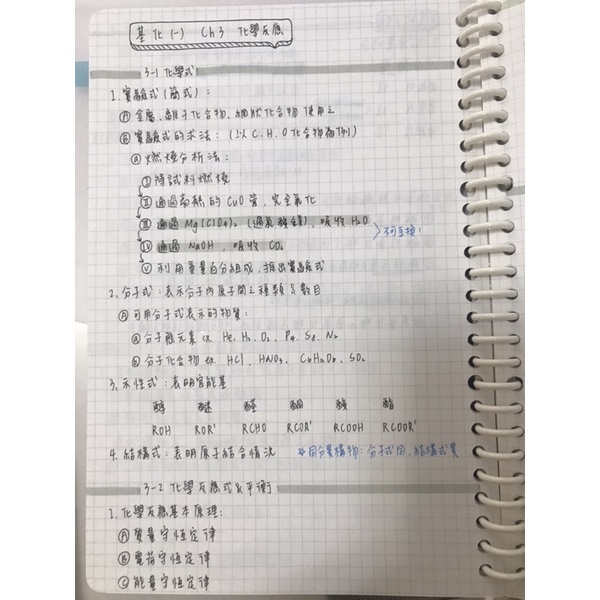 基化(一) Ch3 化學反應
3-1 化學式
1. 實驗式(簡式):
Ⓐ 金屬、離子化合物、網狀化合物使用之
Ⓑ 實驗式的求法:(以C、H、O化合物為例)
ⓐ 燃燒分析法:
Ⅰ 將試料燃燒
Ⅱ 通過高熱的CuO管,完全氧化
Ⅲ 通過Mg(ClO4)2(過氯酸鎂),吸收H2O
〉不可互換!
Ⅳ 通過NaOH,吸收CO2
Ⅴ 利用重量百分組成,推出實驗式
2. 分子式:表示分子內原子間之種類&數目
Ⓐ 可用分子式表示的物質:
ⓐ 分子態元素 ex. He、H2、O2、P4、S8、N2
ⓑ 分子化合物 ex. HCl、HNO3、C6H12O6、SO2
3. 示性式:表明官能基
醇 醚 醛 酮 酸 酯
ROH ROR' RCHO RCOR' RCOOH RCOOR'
4. 結構式:表明原子結合情況 *同分異構物:分子式同,結構式異
3-2 化學反應式&平衡
1. 化學反應基本原理:
Ⓐ 質量守恆定律
Ⓑ 電荷守恆定律
Ⓒ 能量守恆定律